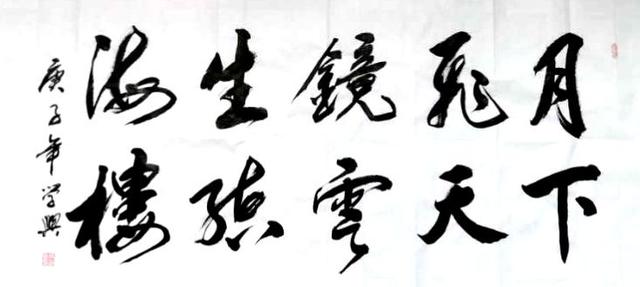 月下
飛天
鏡雲
生結
海樓
庚子年学興